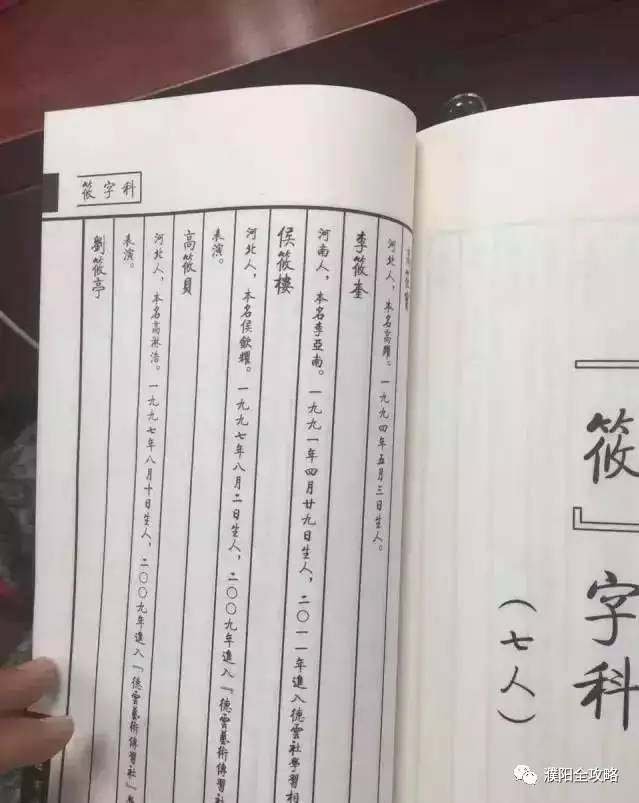 『筱』字科
（七人）
筱字科
高筱寶
河北人，本名高曜。一九九四年五月三日生人。
李筱奎
河南人，本名李亞南。一九九一年四月廿九日生人，二〇一一年進入德雲社學習相
侯筱樓
河北人，本名侯歆耀。一九九七年八月二日生人，二〇〇九年進入『德雲藝術傳習社
表演。
高筱貝
河北人，本名高淋浩。一九九七年八月十日生人，二〇〇九年進入『德雲藝術傳習社』
表演。
劉筱亭
濮阳全攻略